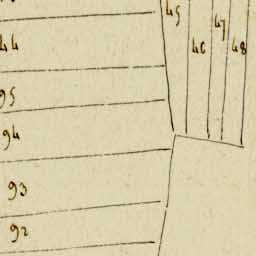 45
47
46
48
44
95
94
93
92